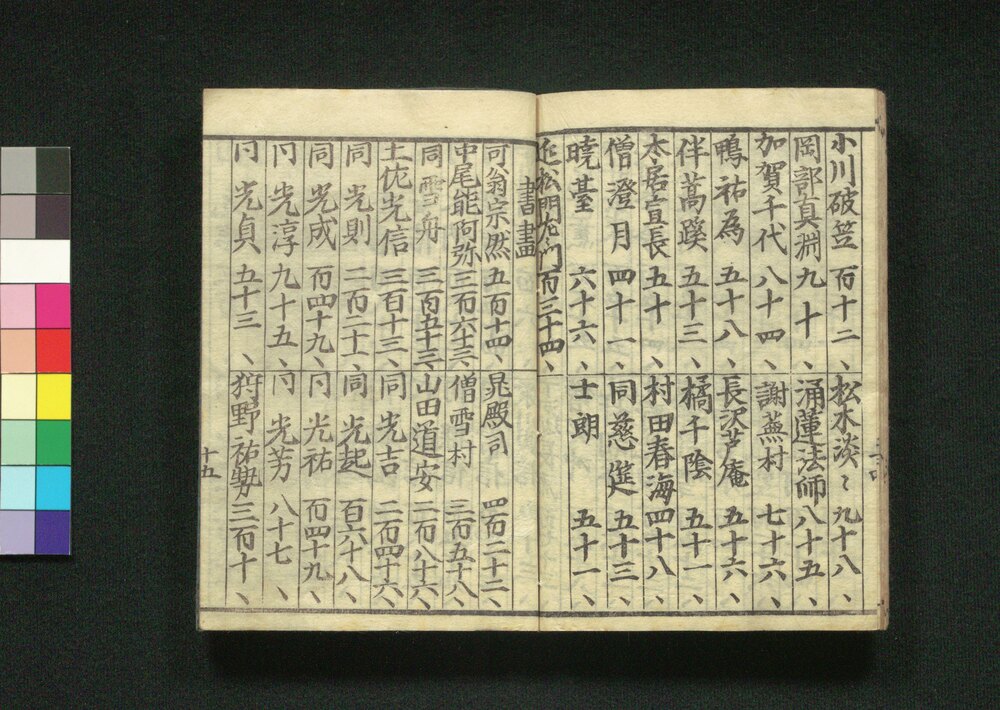 小川破笠 百十二、
松木淡〻 九十八、
岡部真淵 九十、
涌蓮法師 八十五、
加賀千代 八十四、
謝蕪村 七十六、
鴨祐為 五十八、
長沢芦庵 五十六、
伴蒿蹊 五十三、
橘千陰 五十一、
本居宣長 五十、
村田春海 四十八、
僧澄月 四十一、
同慈進 五十三、
暁臺 六十六、
士朗 五十一、
近松門左衛門 百三十四、
書畫
可翁宗然 五百十四、
晁殿司 四百二十二、
中尾能阿弥 三百六十三、
僧雪村 三百五十八、
同雪舟 三百五十三、
山田道安 二百八十六、
土佐光信 三百十三、
同光吉 二百四十六、
同光則 二百二十一、
同光起 百六十八、
同光成 百四十九、
同光祐 百四十九、
同光淳 九十五、
同光芳 八十七、
同光貞 五十三、
狩野祐勢 三百十、
十五